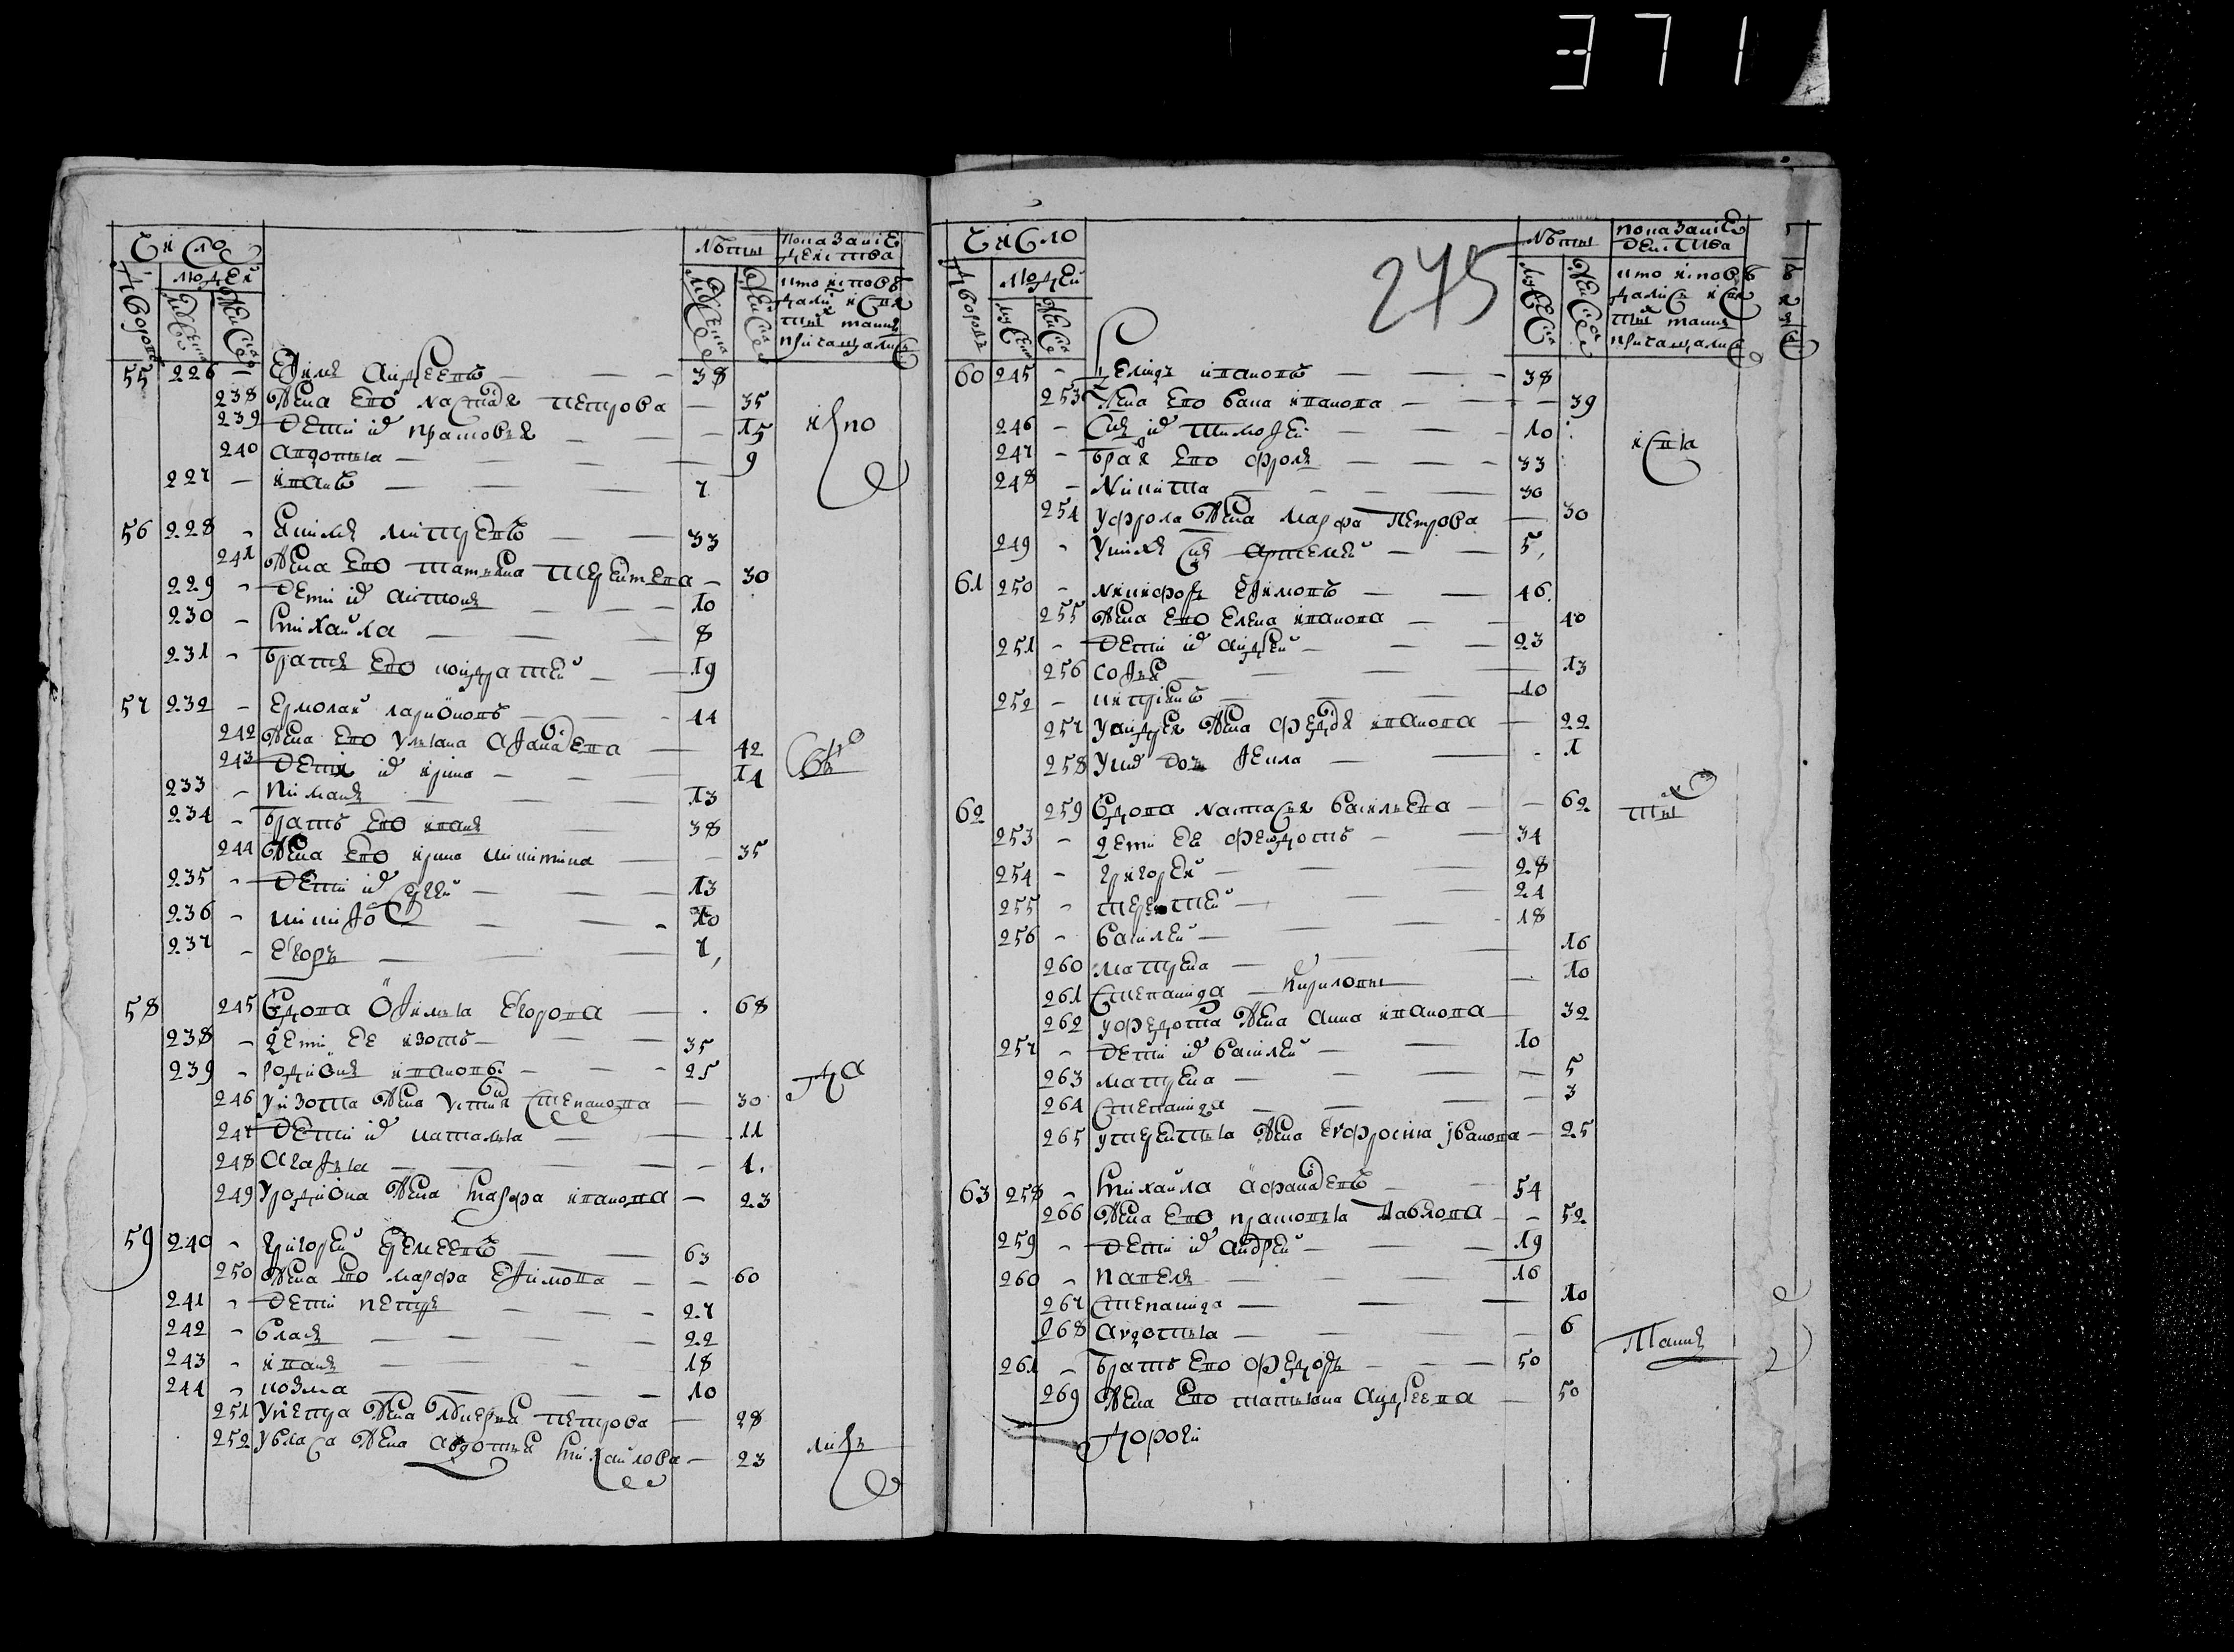 371
Число
Лѣты
показаніе
действа
Дворовъ
людей
мужеска
женска
мужеска
женска
кто исповѣ
дались и свя
тыхъ таинъ
причащались
55 226 - Ефимъ Андреевъ - 38
238 Жена его Настасья Петрова - 35
239 Дети ихъ Прасковья - 15
испо
240 Авдотья - 9
227 - Иванъ - 7
56 228 - Екимъ Митревъ - 33
241 Жена его Татьяна Терентева - 30
229 - Дети ихъ Антонъ - 10
230 - Михайла - 8
231 - Братъ его Кондратей - 19
57 232 - Ермолай Ларионовъ - 44
242 Жена его Ульяна Афанасева - 42
243 Дети ихъ Ирина - 14
233 - Киманъ - 13
234 - Братъ его Иванъ - 38
244 Жена его Ирина Никитина - 35
235 - Дети ихъ Сергей - 13
236 - Никифоръ - 10
237 - Егоръ - 7
58 245 Вдова Офимья Егорова - 68
238 - Дети ее Изотъ - 35
239 - Родионъ Ивановъ - 25
да
246 У Изота жена Устинья Степанова - 30
247 Дети ихъ Наталья - 11
248 Агафья - 1
249 У Родиона жена Марфа Иванова - 23
59 240 - Григорей Еремеевъ - 63
250 Жена его Марфа Ефимова - 60
241 - Дети Петръ - 27
242 - Власъ - 22
243 - Иванъ - 18
244 - Козма - 10
251 У Петра жена Лукерья Петрова - 28
252 У Власа жена Авдотья Михайлова - 23
лись
275
Число
Лѣты
показаніе
действа
Дворовъ
людей
мужеска
женска
мужеска
женска
кто исповѣ
дались и свя
тыхъ таинъ
причащались
60 245 - Ивановъ - 38
253 Жена его Васа Иванова - 39
246 - Сынъ ихъ Тимофей - 10
исвя
247 - Братья его Фролъ - 33
248 - Никита - 30
254 У Фрола жена Марфа Петрова - 30
249 - У нихъ сынъ Артемей - 5
61 250 - Никифоръ Ефимовъ - 46
255 Жена его Елена Иванова - 40
251 - Дети ихъ Андрей - 23
256 Софья - 13
252 - Киприянъ - 10
257 У Андрея жена Федосья Иванова - 22
258 У нихъ дочь Фекла - 1
62 259 Вдова Настасья Васильева - 62
тыхъ
253 - Дети ее Федотъ - 34
254 - Григорей - 28
255 - Терентей - 24
256 - Василей - 18
260 Матрена - 16
261 Степанида - Кириловы - 10
262 У Федота жена Анна Иванова - 32
257 - Дети ихъ Василей - 10
263 Матрена - 5
264 Степанида - 3
265 У Терентья жена Ефросинья Іванова - 25
63 258 - Михайла Афанасевъ - 54
266 Жена его Прасковья Павлова - 52
259 - Дети ихъ Андрей - 19
260 - Павелъ - 16
267 Степанида - 10
268 Авдотья - 6
Таинъ
261 - Братъ его Федоръ - 50
269 Жена его Татьяна Андреева - 50